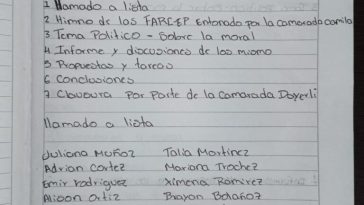 1 Llamado a lista
2 Himno de las FARCEP entonado por la camarada camila
3 Tema Politico - Sobre la moral
4 Informe y discuciones de los mismo
5 Propuestas y tareas
6 Conclusiones
7 Clausura por Parte de la Camarada Doyerli
llamado a lista
Juliana Muñoz Talia Martinez
Adrian Cortez Mariana Trochez
Emir Rodriguez Ximena Ramirez
Alison Ortiz Brayan Bolaños